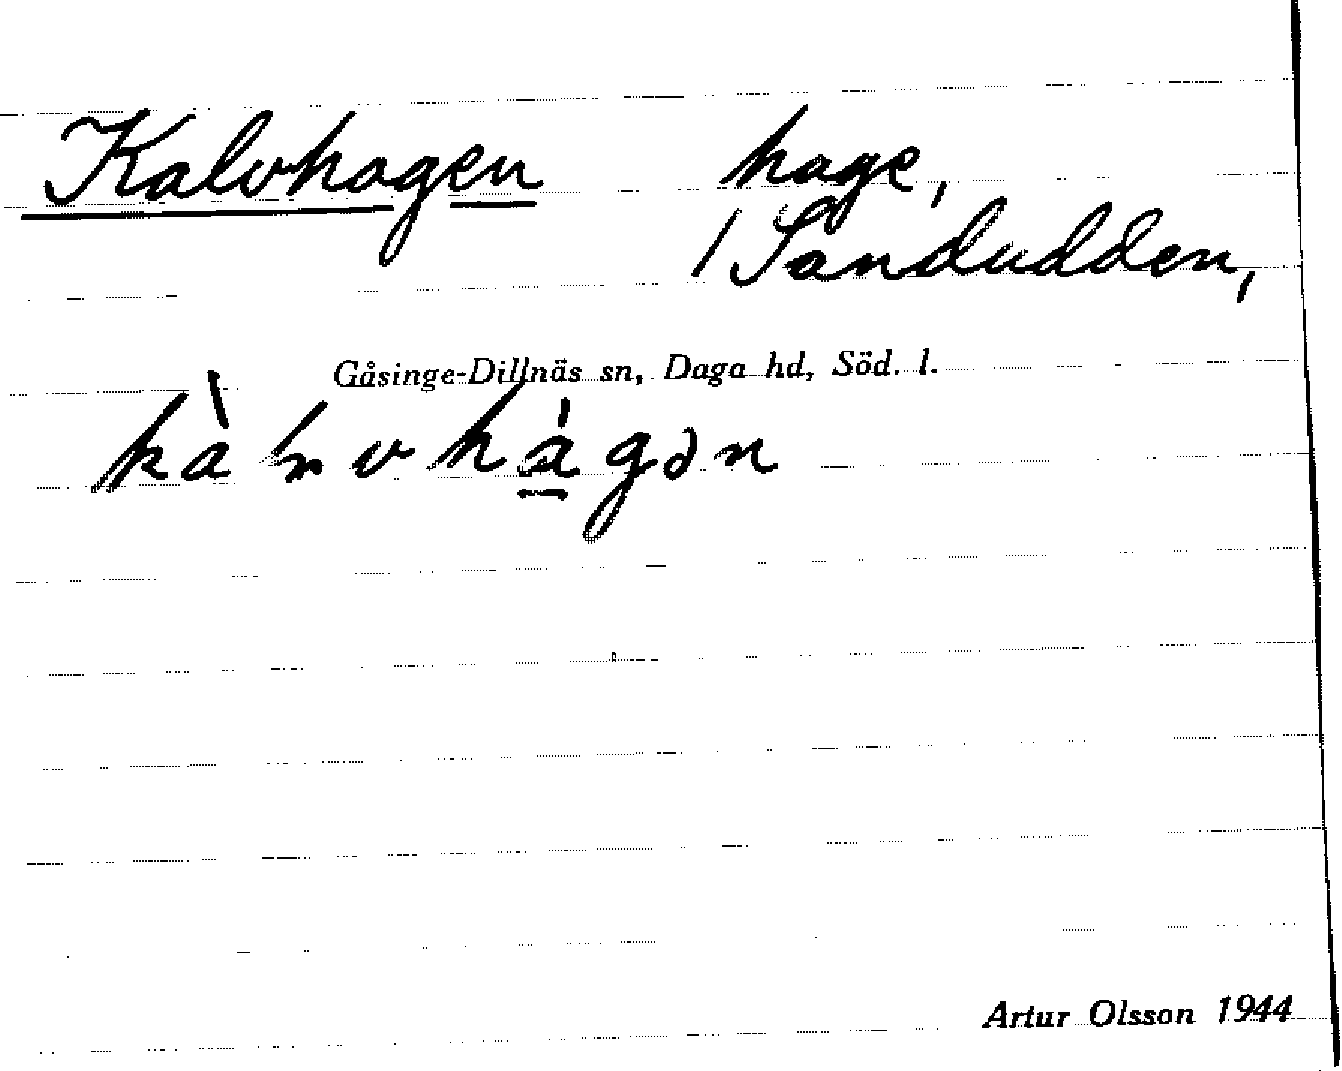 Kalvhagen hage,
/ Sandudden,
Gåsinge-Dillnäs sn, Daga hd, Söd. l.
Artur Olsson 1944